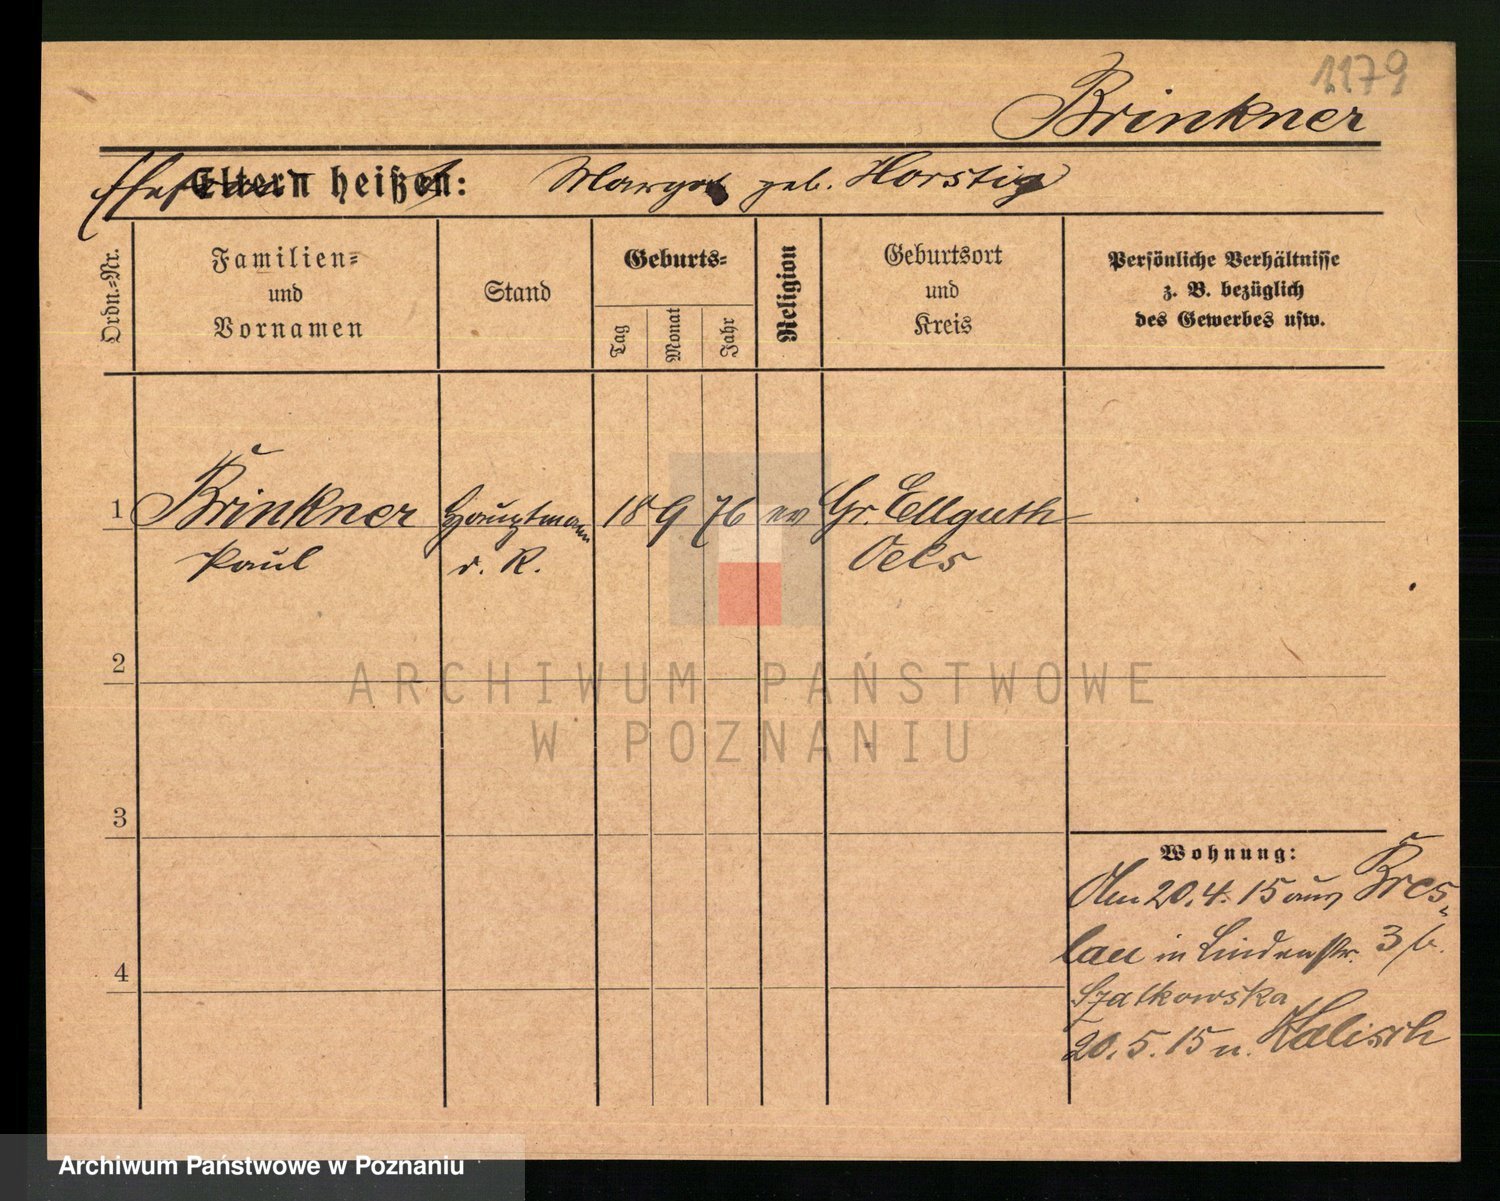 1179
Brinkner
Ehefrau Eltern heißen: Margot geb. Horstig
Ordn.-Nr.
Familien-
und
Vornamen
Stand
Geburts-
Tag
Monat
Jahr
Religion
Geburtsort
und
Kreis
Persönliche Verhältnisse
z. B. bezüglich
des Gewerbes usw.
1 Brinkner Hauptmann 18 9 76 ev Gr. Ellguth
Paul d. R. Oels
2
3
4
Wohnung:
Am 20.4.15 aus Bres-
lau in Lindenstr. 3 b.
Szatkowska
20.5.15 n. Kalisch
ARCHIWUM PAŃSTWOWE
W POZNANIU
Archiwum Państwowe w Poznaniu